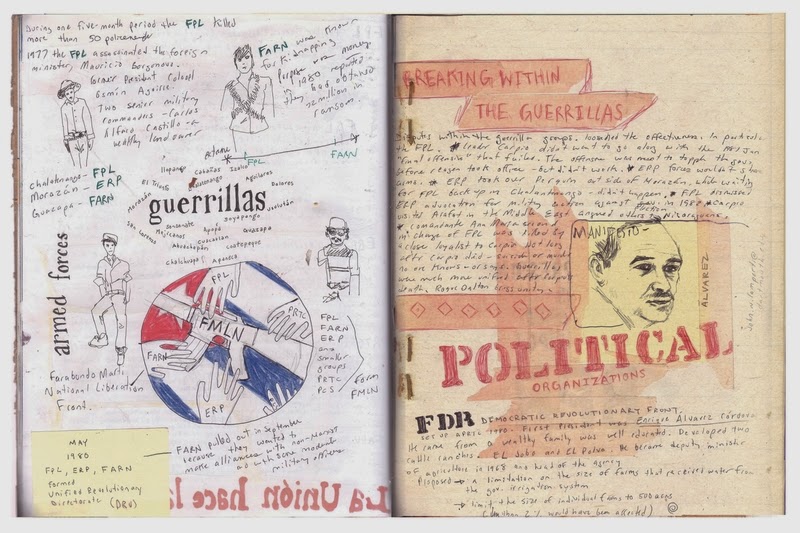 During one five-month period the FPL killed
more than 50 policemen
1977 the FPL assassinated the foreign
minister Mauricio Borgonovo.
former President Colonel
Osmín Aguirre.
Two senior military
commanders - Carlos
Alfaro Castillo - a
wealthy landowner
FARN were known
for kidnapping
purpose was money
in 1980 reported
they had obtained
million in
ransom
FPL
FARN
Chalatenango - FPL
Morazán - ERP
Guazapa - FARN
Ilopango
Cabañas
Izalco
Aguilares
El Tigre
Dolores
Morazán
guerrillas
Usulután
San Lorenzo
Sonsonate
Soyapango
Mejicanos
Apopa
Guazapa
Cuscatlan
Ahuachapán
Coatepeque
Chalchuapa
Apaneca
armed forces
FPL
PRTC
FMLN
FARN
ERP
Farabundo Martí
National Liberation
Front.
FPL
FARN
ERP
and
smaller
groups
PRTC
PCS
form
FMLN
MAY
1980
FPL, ERP, FARN
formed
Unified Revolutionary
Directorate
(DRU)
FARN pulled out in September
because they wanted to
make alliances with non-Marxist
and with some moderate
military officers
La Unión hace l
BREAKING WITHIN
THE GUERRILLAS
Disputes within the guerrilla groups, loosened the effectiveness. In particular
the FPL. leader Carpio didn't want to go along with the 1981 Jan
"final offensive" that failed. The offensive was meant to topple the gov.
before Reagan took office - but didn't work. ERP forces wouldn't share
arms. ERP took over Perquin outside of Morazán, while waiting
for FPL back up in Chalatenango - didn't happen. FPL dismissed
ERP advocation for military action against gov. in 1982 Carpio
visits Arafat in the Middle East angered others
comandante Ana Maria second
in charge of FPL was killed by
a close loyalist to Carpio not long
after Carpio died - suicide or murder
no one knows - or says. Guerrillas
were much more unified after
death, Roque Dalton
MANIFESTO -
ÁLVAREZ
POLITICAL
ORGANIZATIONS
FDR DEMOCRATIC REVOLUTIONARY FRONT.
set up April 1980. First President was Enrique Alvarez Córdova
He came from a wealthy family was well educated. Developed two
cattle ranches - El Jobo and El Polvo. He became deputy minister
of agriculture in 1968 and head of the agency
Proposed → a limitation on the size of farms that received water from
the gov. irrigation system
→ limit the size of individual farms to 500 acres
(less than 2% would have been affected)